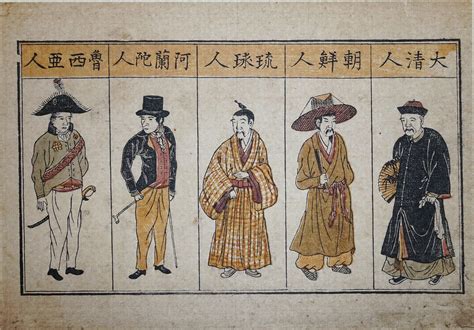 大清人
朝鮮人
琉球人
阿蘭陀人
魯西亜人